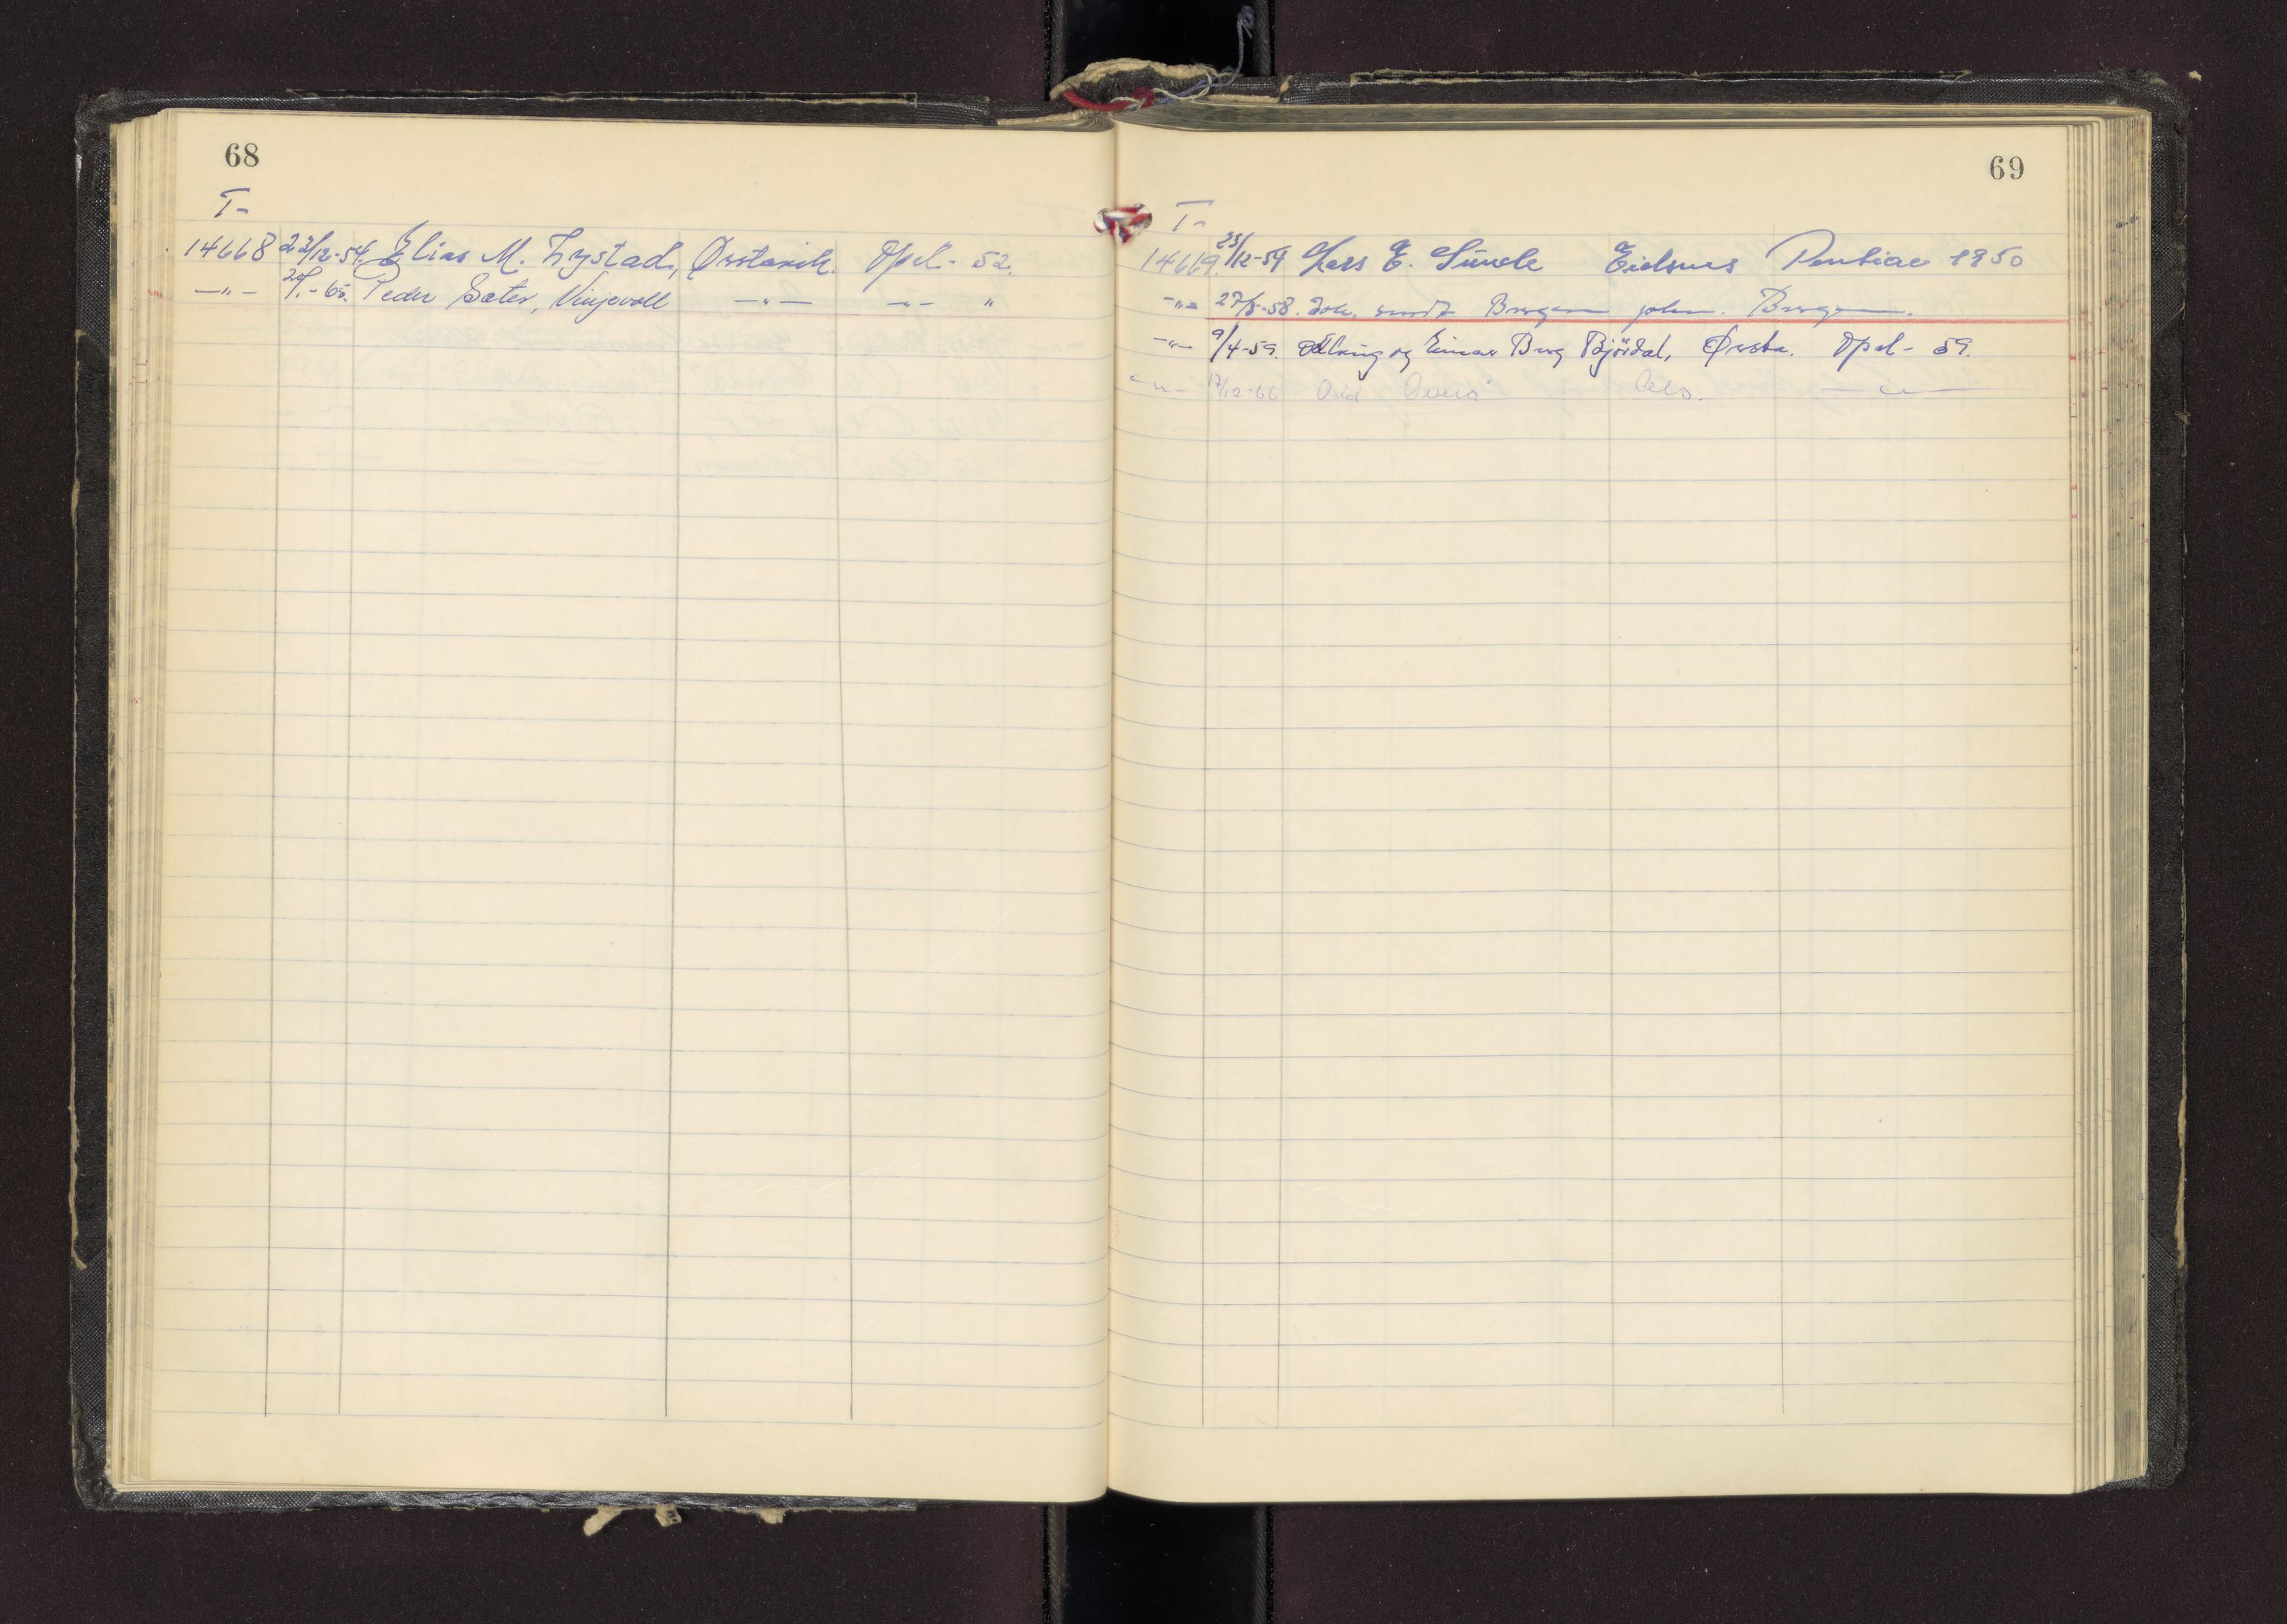 68
T-
14668 23/12-54. Elias M. Lystad, Ørstavik. Opel- 52.
-"- 20/1.-65. Peder Sæter, Vinjevoll -"- -"- "
69
T-
14669. 23/12-54 Lars E. Sunde Eidsnes Pontiac 1950
-"- 27/8-58. Dok. sendt Bergen politik. Bergen.
-"- 9/4-59. og Einar Berg Bjørdal, Ørsta. Opel- 59.
-"- 17/12-66 Odd -"-